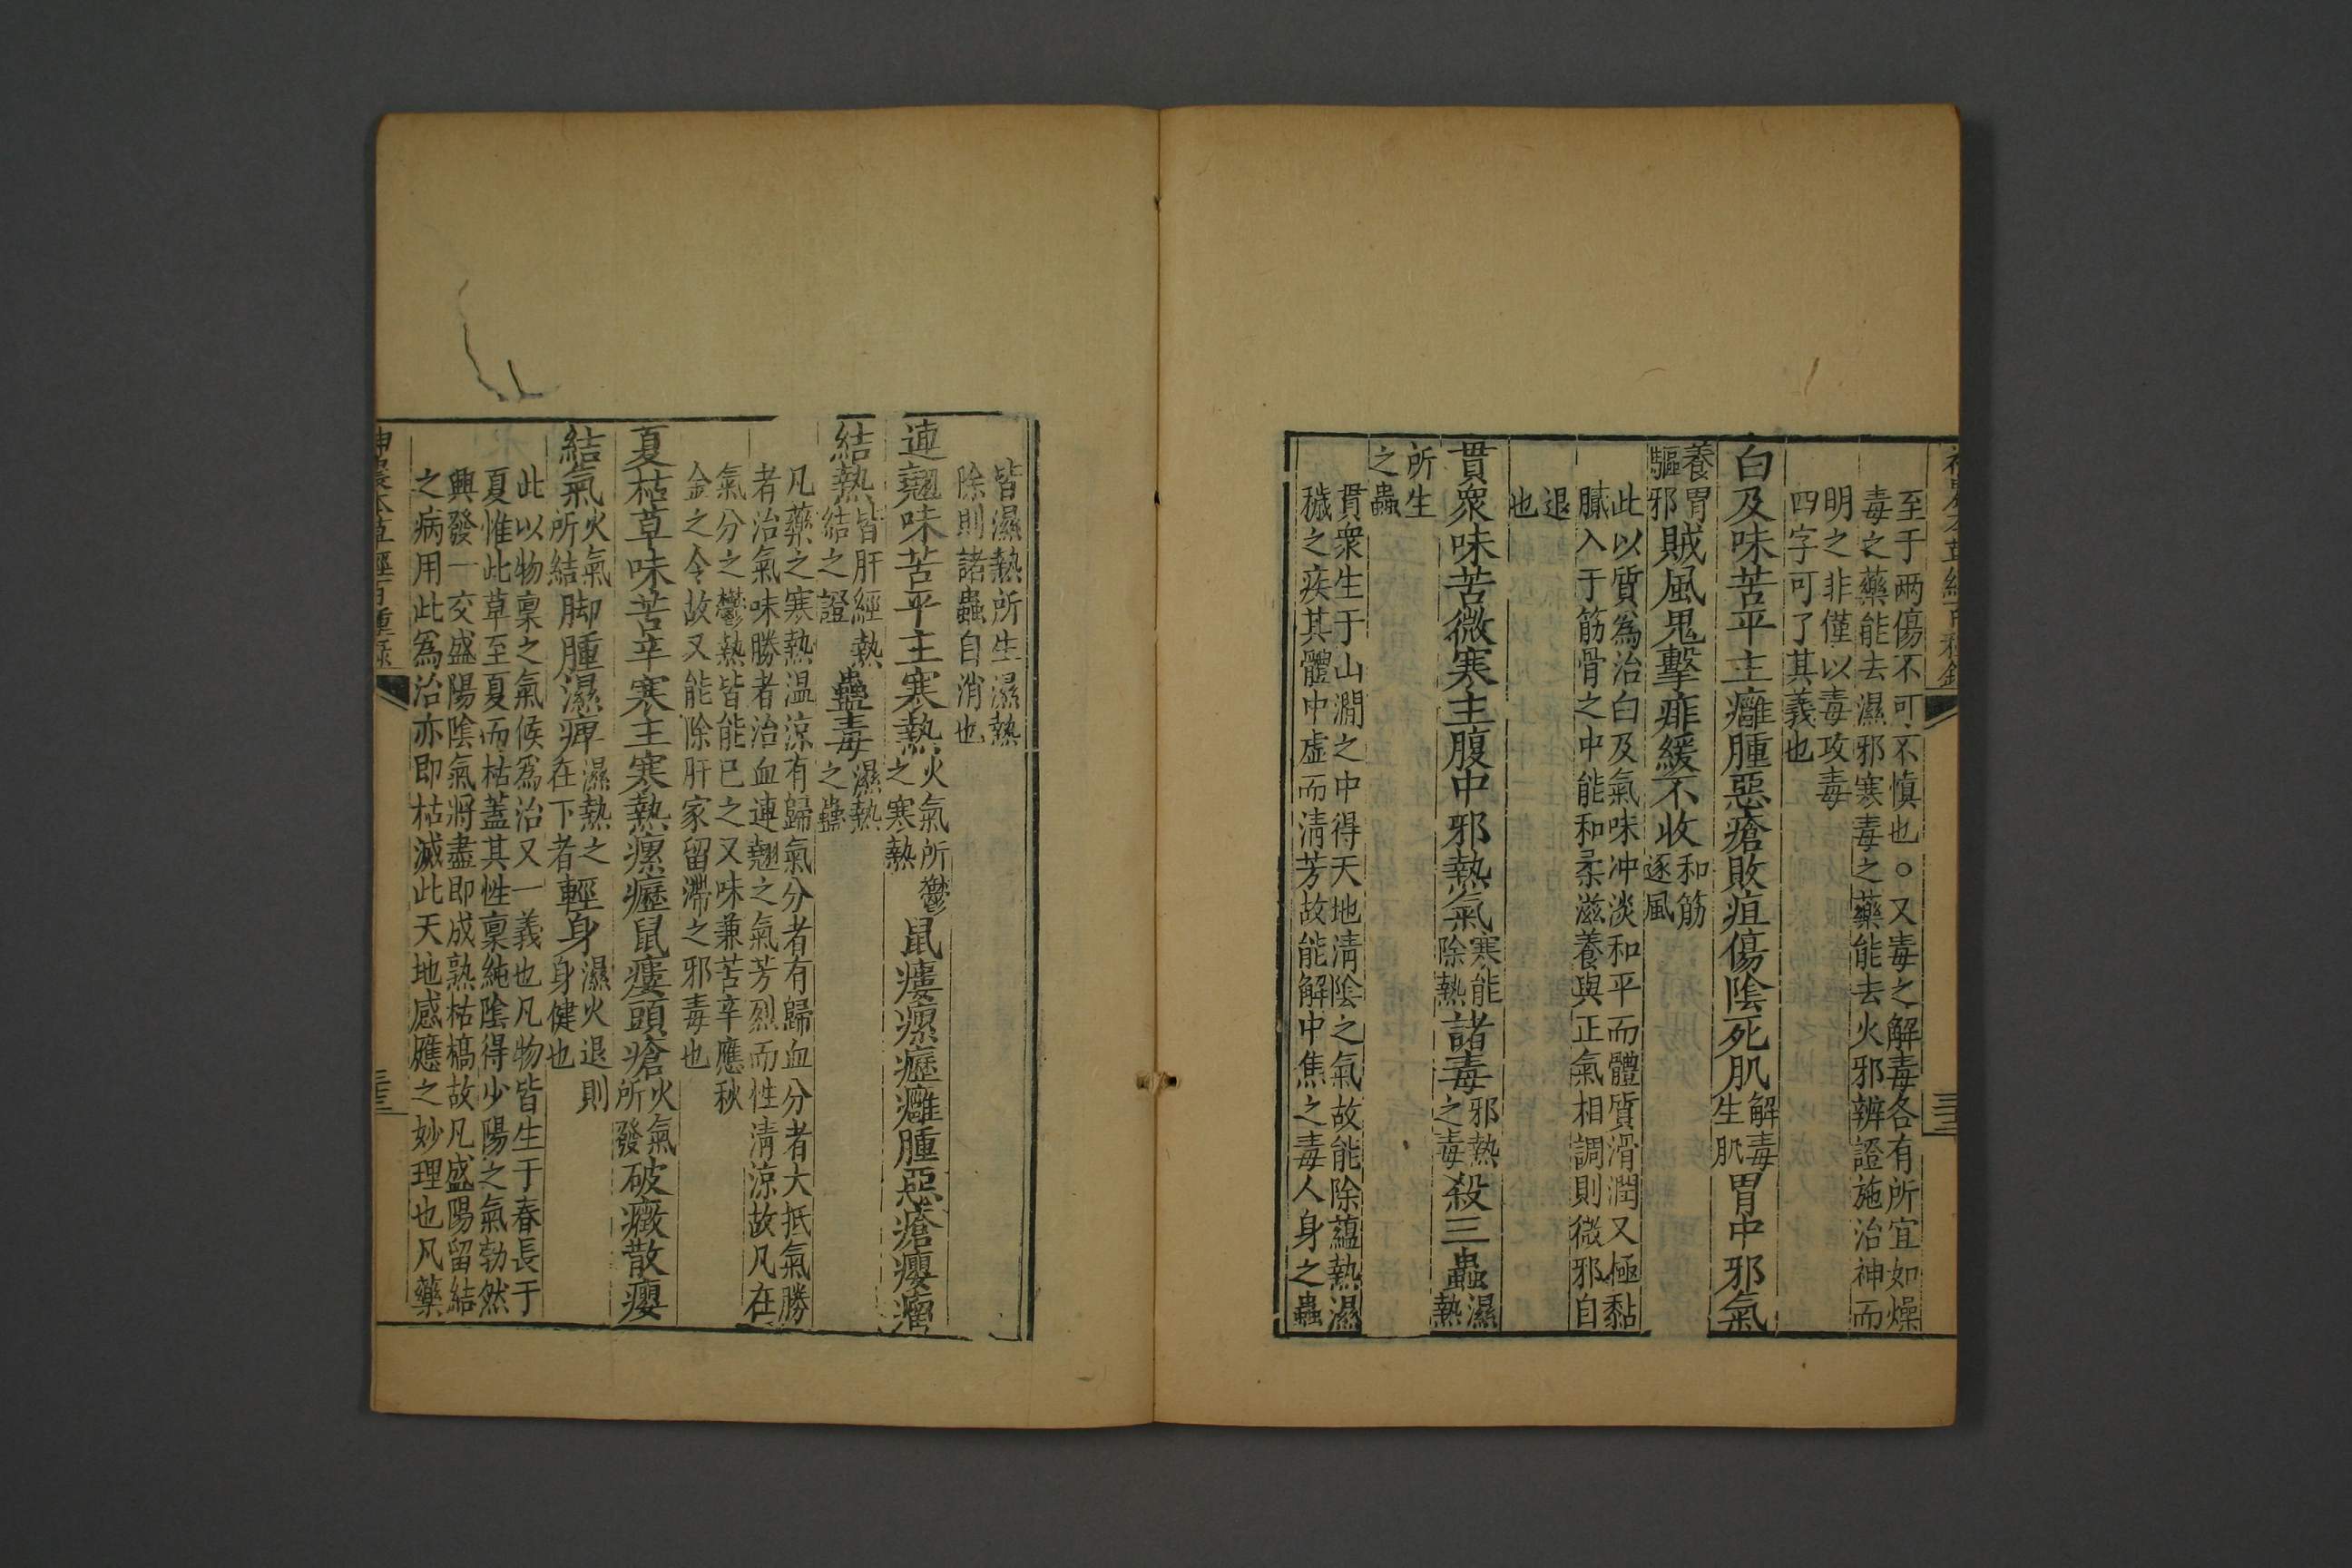 至于兩傷不可不慎也○又毒之解毒各有所宜如燥
毒之藥能去濕邪寒毒之藥能去火邪辨證施治神而
明之非僅以毒攻毒
四字可了其義也
白及味苦平主癰腫惡瘡敗疽傷陰死肌解毒生肌胃中邪氣
養胃驅邪賊風鬼擊痱緩不收和筋逐風
此以質為治白及氣味冲淡和平而體質滑潤又極黏
膩入于筋骨之中能和柔滋養與正氣相調則微邪自
退
也
貫衆味苦微寒主腹中邪熱氣寒能除熱諸毒邪熱之毒殺三蟲濕熱
所生之蟲
貫衆生于山澗之中得天地清陰之氣故能除蘊熱濕
穢之疾其體中虛而清芳故能解中焦之毒人身之蟲
皆濕熱所生濕熱
除則諸蟲自消也
連翹味苦平主寒熱火氣所鬱之寒熱鼠瘻瘰癧癰腫惡瘡癭瘤
結熱皆肝經熱結之證蠱毒濕熱之蟲
凡藥之寒熱温涼有歸氣分者有歸血分者大抵氣勝
者治氣味勝者治血連翹之氣芳烈而性清涼故凡在
氣分之鬱熱皆能已之又味兼苦辛應秋
金之令故又能除肝家留滯之邪毒也
夏枯草味苦辛寒主寒熱瘰癧鼠瘻頭瘡火氣所發破癥散癭
結氣火氣所結脚腫濕痺濕熱之在下者輕身濕火退則身健也
此以物稟之氣候為治又一義也凡物皆生于春長于
夏惟此草至夏而枯蓋其性稟純陰得少陽之氣勃然
興發一交盛陽陰氣將盡即成熟枯槁故凡盛陽留結
之病用此為治亦即枯滅此天地感應之妙理也凡藥
神農本草經百種錄
三三